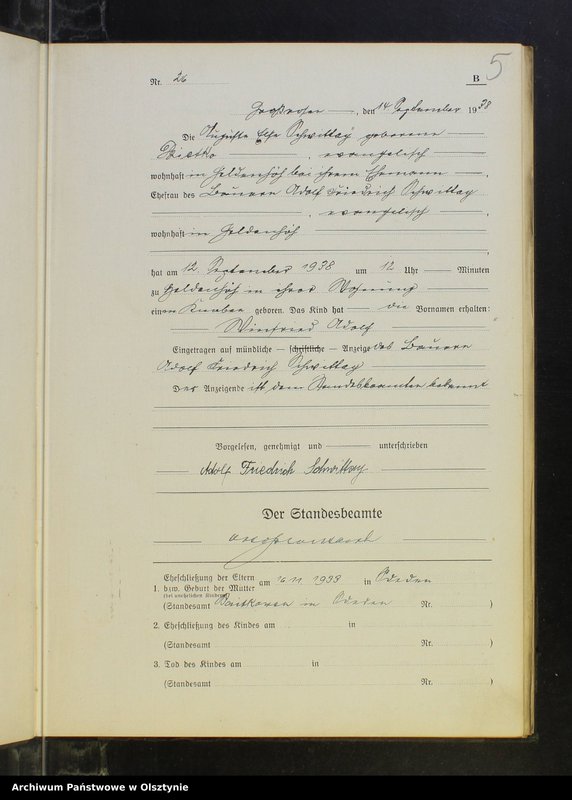 5
Nr. 26 B
Großrosen, den 14 September 1938
Die Auguste Schwittay geborene
evangelisch
wohnhaft in Heldenhöh bei ihrem Ehemann,
Ehefrau des Bauern Adolf Friedrich Schwittay
, evangelisch,
wohnhaft in Heldenhöh
hat am 12. September 1938 um 12 Uhr Minuten
zu Heldenhöh in ihrer Wohnung
einen Knaben geboren. Das Kind hat die Vornamen erhalten:
Winfried Adolf
Eingetragen auf mündliche – schriftliche – Anzeige des Bauern
Adolf Friedrich Schwittay
Der Anzeigende ist dem Standesbeamten bekannt
Vorgelesen, genehmigt und unterschrieben
Adolf Friedrich Schwittay
Der Standesbeamte
1. Eheschließung der Eltern
bzw. Geburt der Mutter am 16 11. 1933 in
(bei unehelichen Kindern)
(Standesamt in Nr. )
2. Eheschließung des Kindes am in
(Standesamt Nr. )
3. Tod des Kindes am in
(Standesamt Nr. )
Archiwum Państwowe w Olsztynie